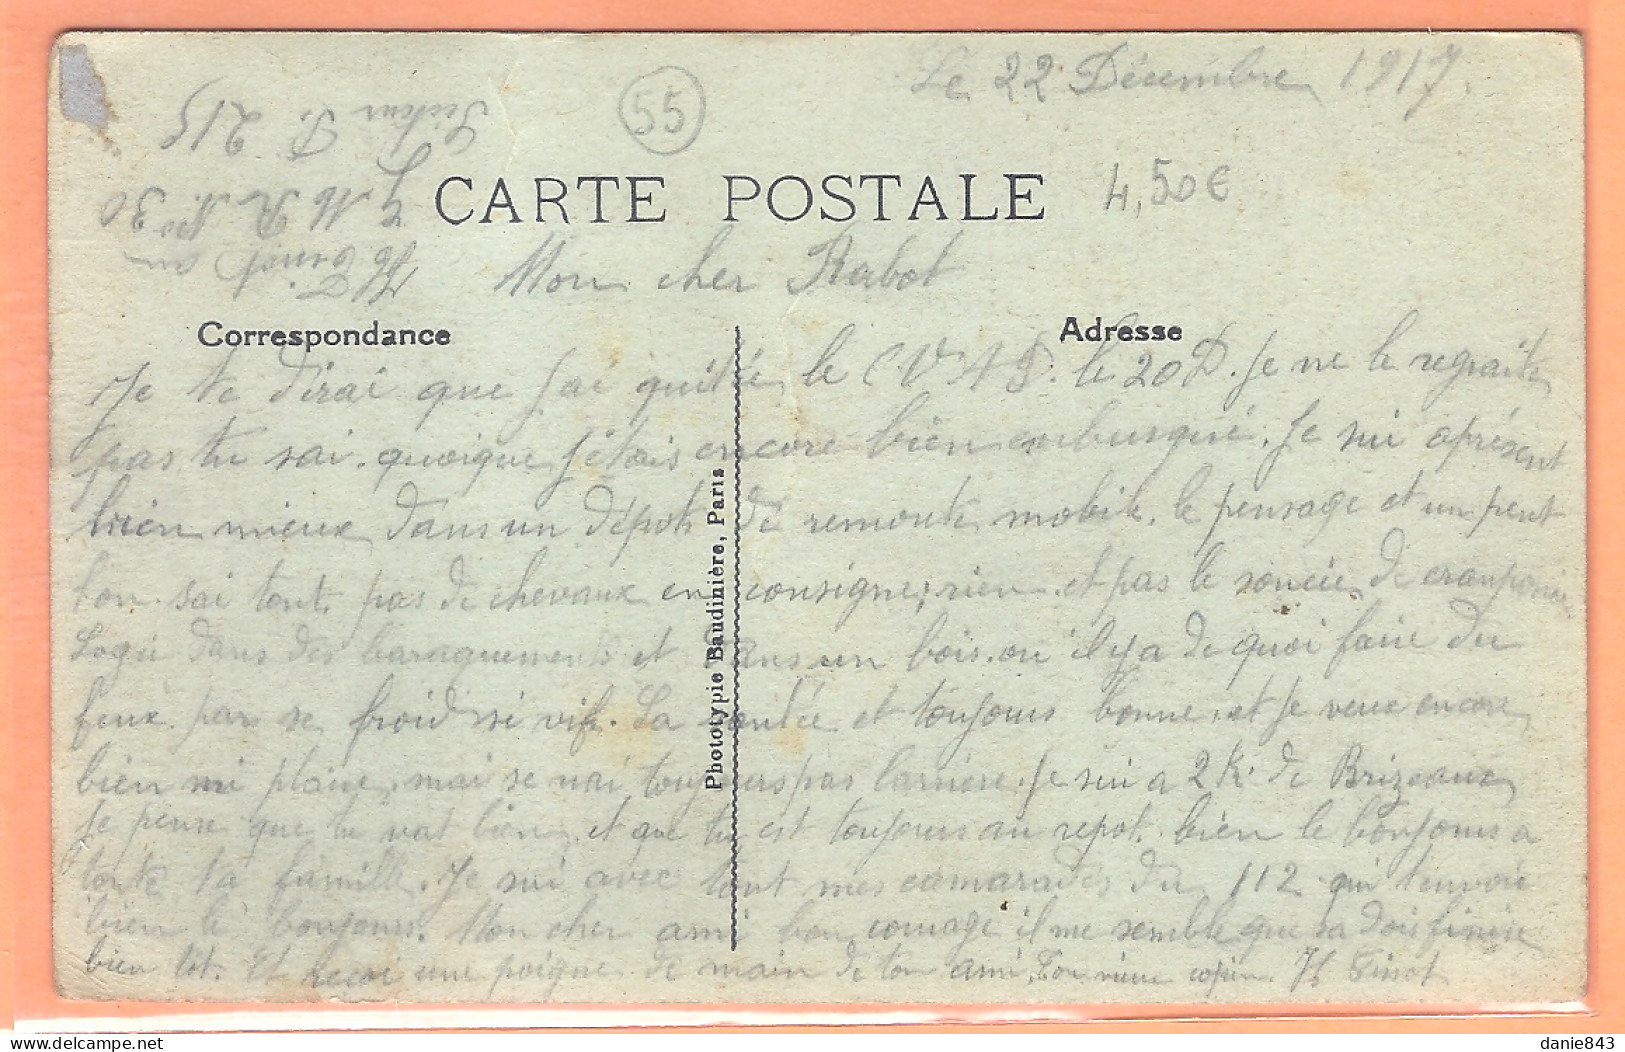 Le 22 Décembre 1917.
55
Secteur P. 215
G M R No 30
H Tissot au
CARTE POSTALE
4,50€
Mon cher Rabot
Correspondance
Adresse
Je te dirai que j'ai quitté le C.V.A.D. le 20 D. Je ne le regraite
pas tu sai. quoique j'étais encore bien enbusqué. Je sui aprésent
bien mieux dans un dépot de remonte mobile. le pensage et un peut
lon. sai tout, pas de chevaux en consigne, rien. et pas le soucie de
Logé dans des baraquements et dans un bois. ou il y a de quoi faire du
feux. par se froid si vif. La santée et toujours bonne, et je veux encore
bien mi plaire, mai se nai toujours pas larrière. Je sui a 2 K. de Brizeaux
je pense que tu vat bien. et que tu est toujours au repot. bien le bonjours a
toute ta famille. Je sui avec tout mes camarades du 112 qui t'envoie
bien le bonjours. Mon cher ami bon courage il me semble que sa dois finire
bien tôt. Et recoi une poigne de main de ton ami. Ton vieux copain. H Tissot
Phototypie Baudinière, Paris
delcampe.net
danie843